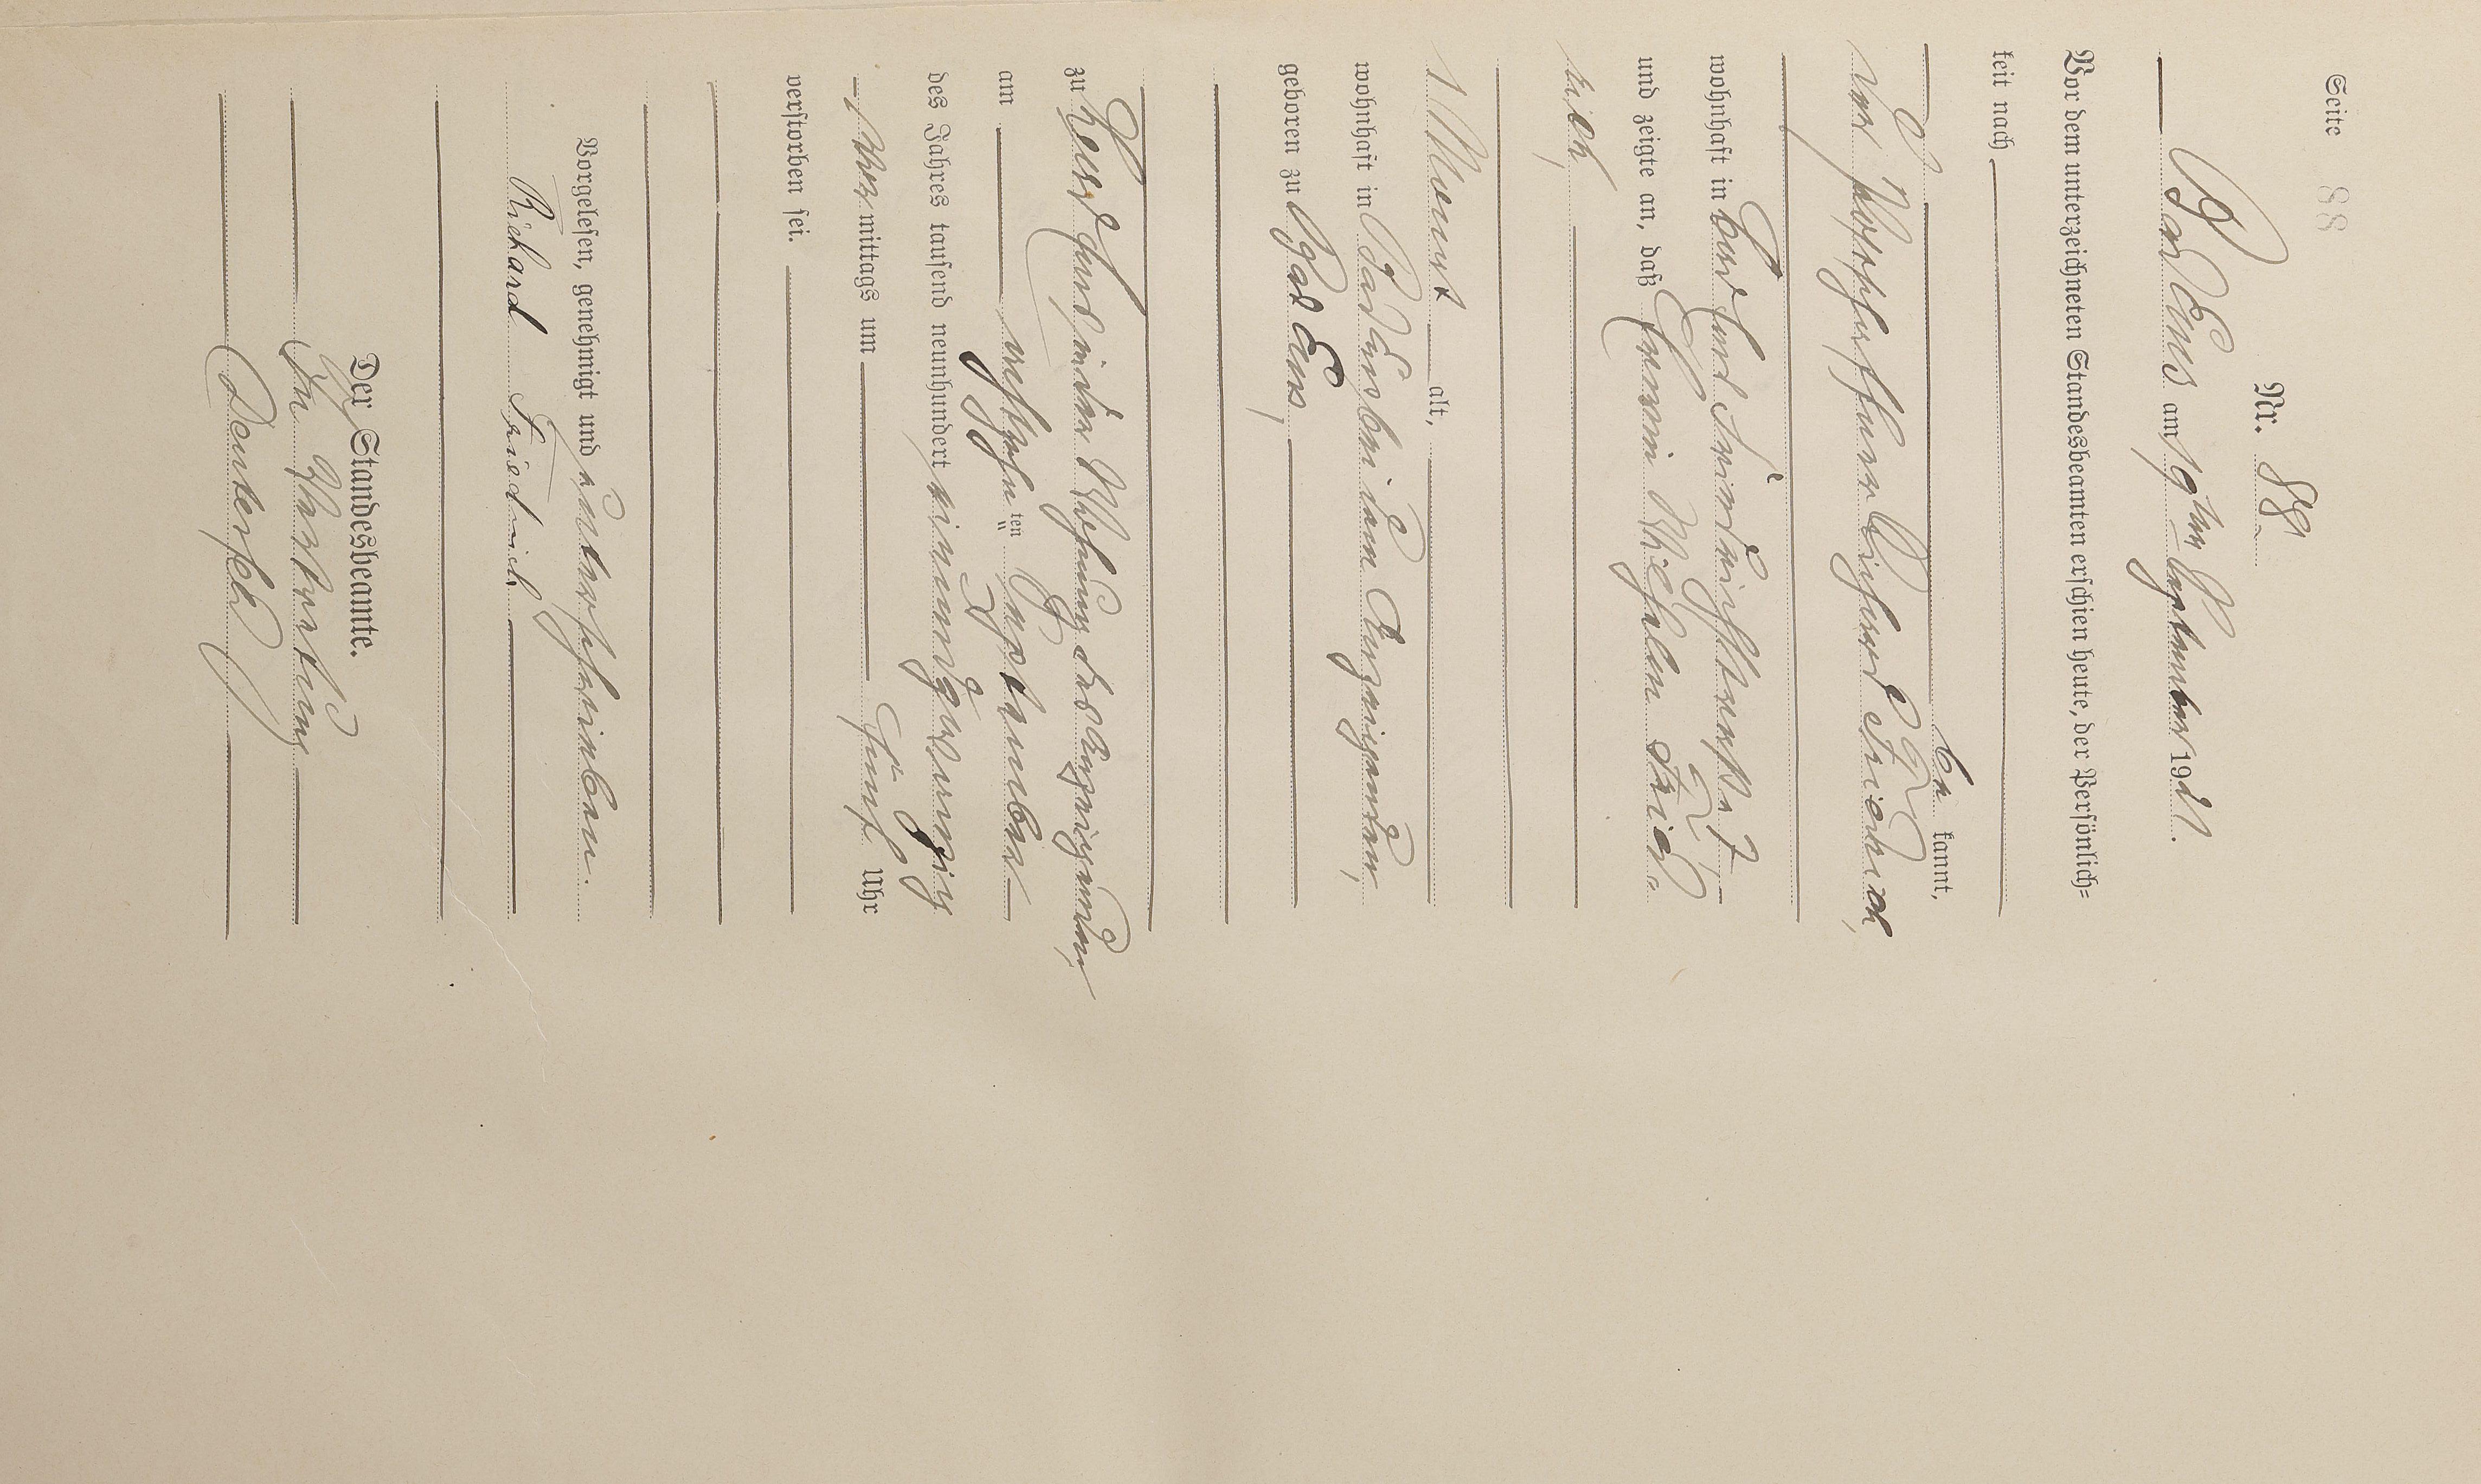 Seite 88
Nr. 88
Bad Ems am 19ten September 1921.
Vor dem unterzeichneten Standesbeamten erschien heute, der Persönlich=
keit nach
be kannt,
der Postschaffner Richard Friedrich,
wohnhaft in Bad Ems, Friedrichstraße 7
und zeigte an, daß Erwin Wilhelm Fried
rich,
1 Monat alt,
wohnhaft in Bad Ems bei dem Anzeigenden,
geboren zu Bad Ems,
zu Bad Ems in der Wohnung des Anzeigenden,
am achtzehn ten September
des Jahres tausend neunhundert einundzwanzig
Vor mittags um fünf Uhr
verstorben sei.
Vorgelesen, genehmigt und unterschrieben.
Richard Friedrich
Der Standesbeamte.
In Vertretung